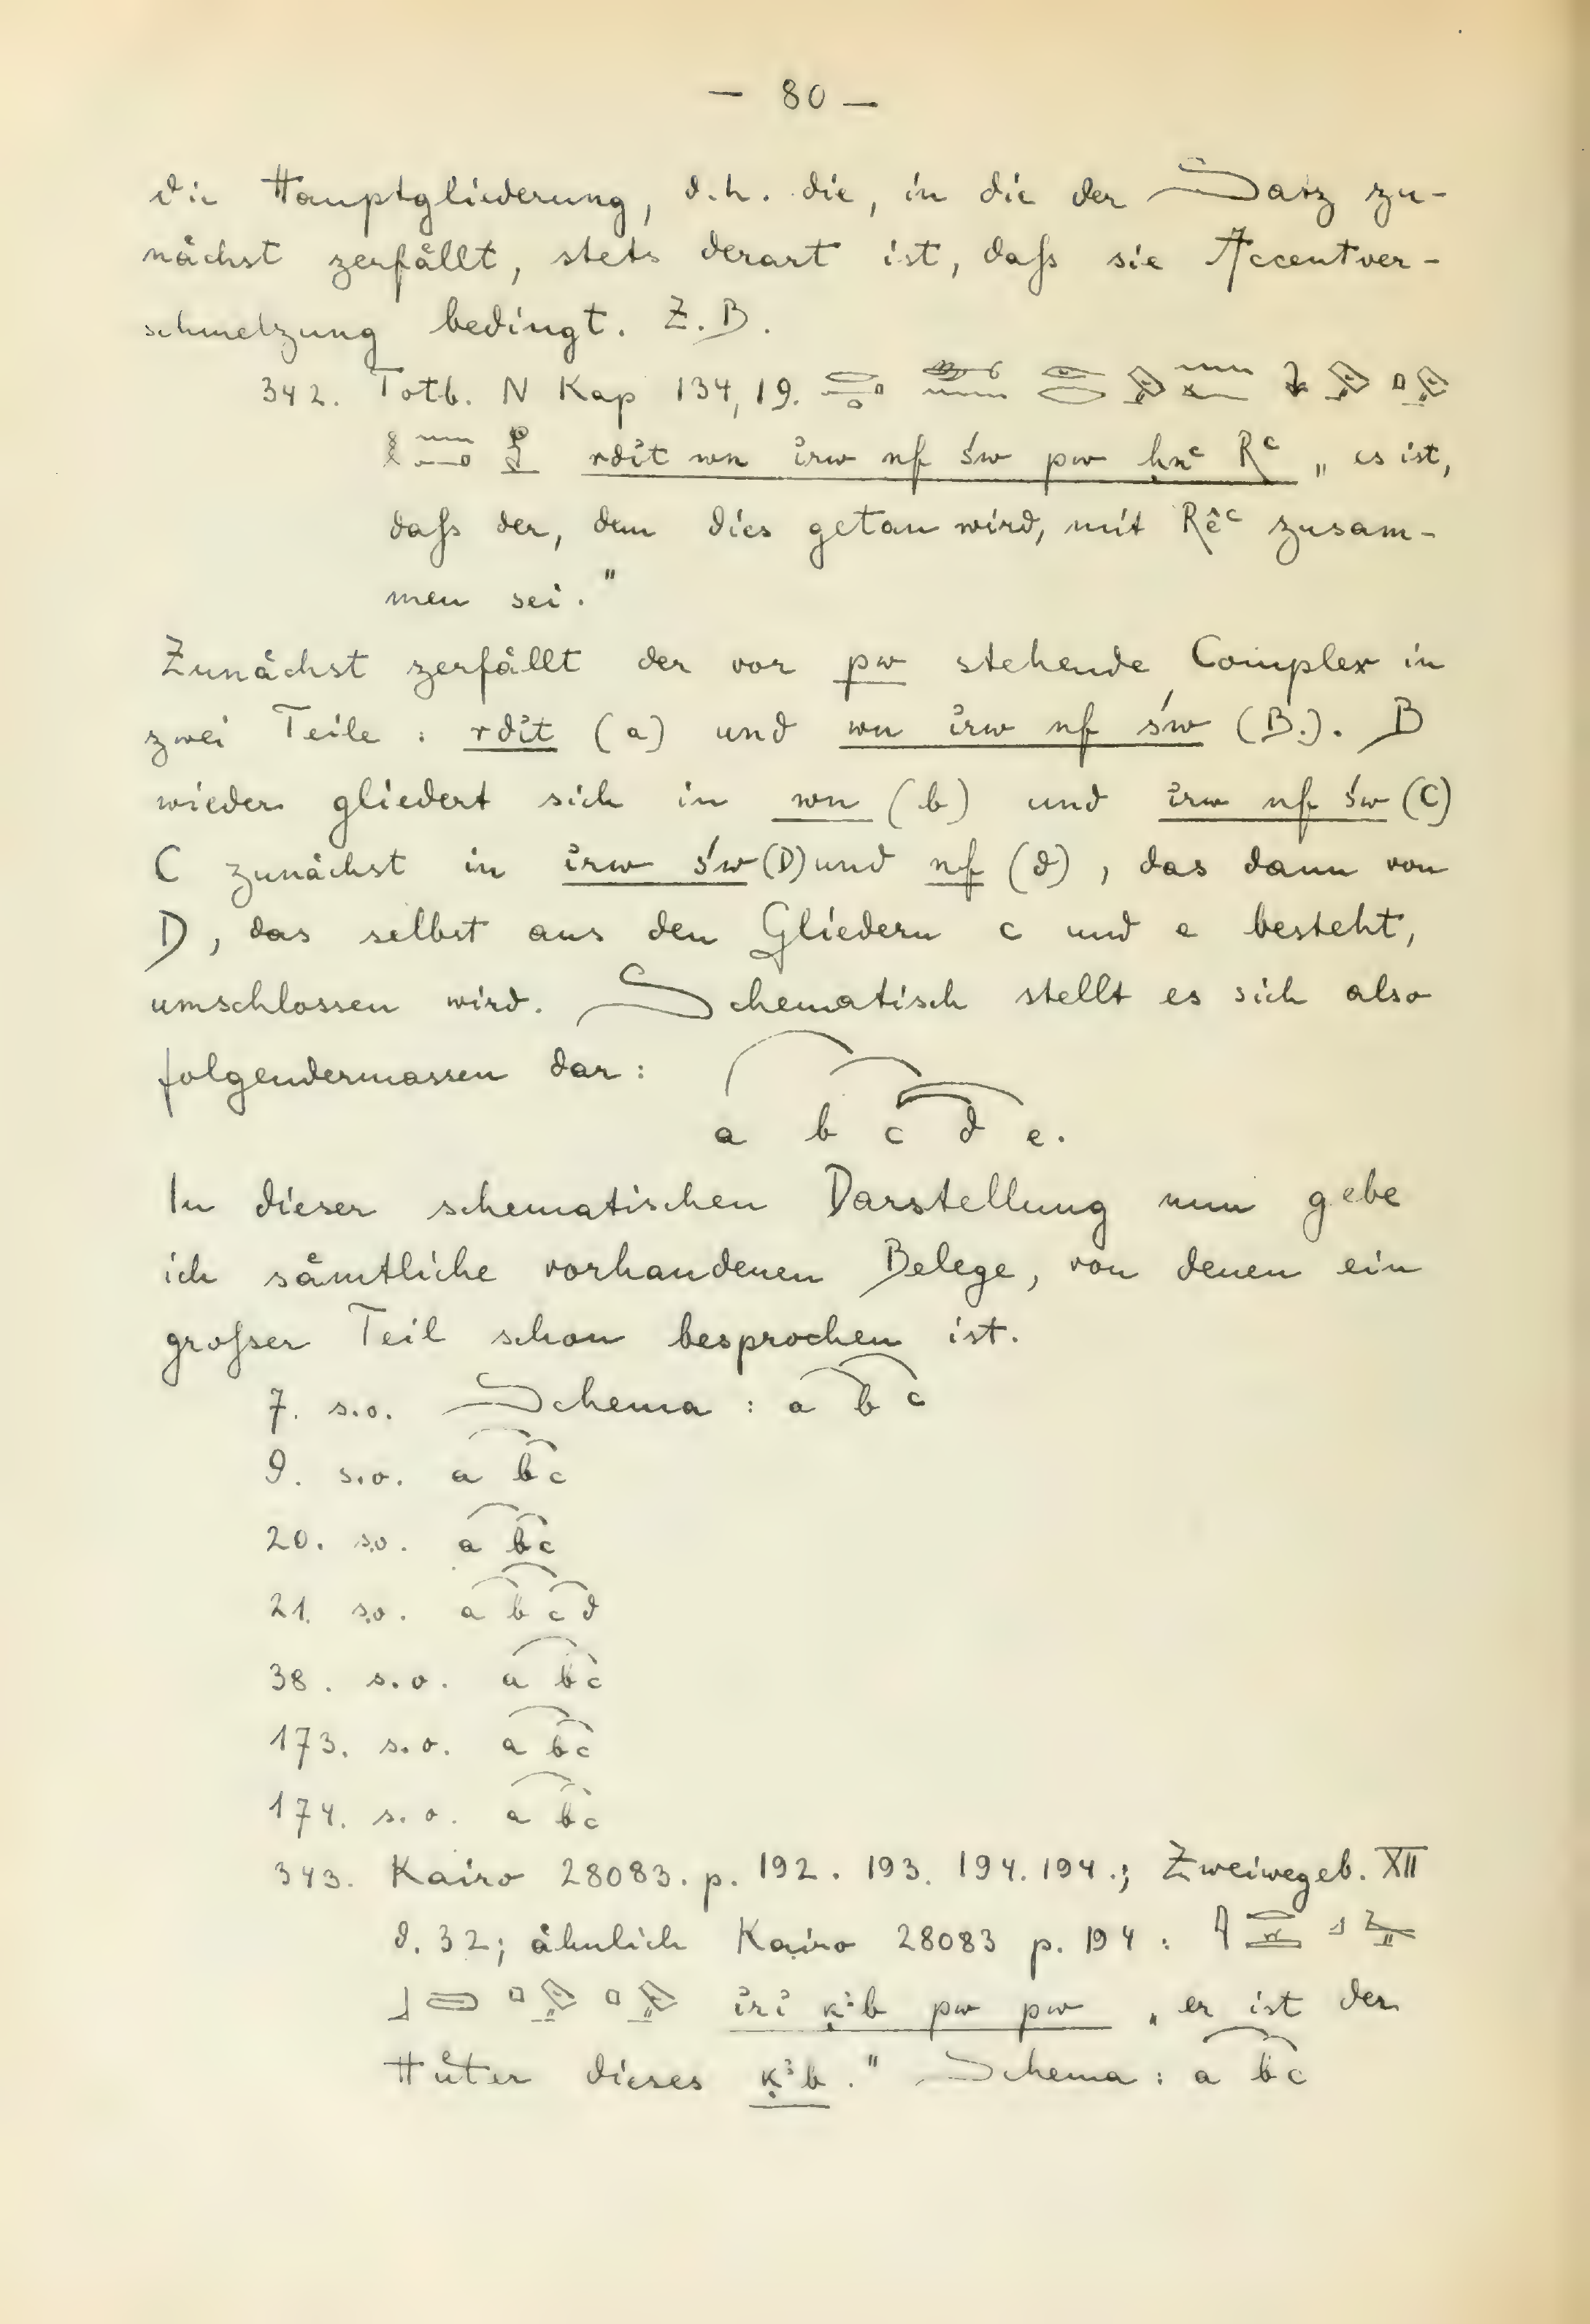 — 80 —
die Hauptgliederung, d.h. die, in die der Satz zu-
nächst zerfällt, stets derart ist, daſs sie Accentver-
schmelzung bedingt. Z.B.
342. Totb. N Kap 134,19.
rdἰt wn ἰrw nf św pw ḥnꜥ Rꜥ „es ist,
daſs der, dem dies getan wird, mit Rêꜥ zusam-
men sei."
Zunächst zerfällt der vor pw stehende Complex in
zwei Teile: rdἰt (a) und wn ἰrw nf św (B.). B
wieder gliedert sich in wn (b) und ἰrw nf św (C)
C zunächst in ἰrw św (D) und nf (d), das dann von
D, das selbst aus den Gliedern c und e besteht,
umschlossen wird. Schematisch stellt es sich also
folgendermassen dar:
a b c d e.
In dieser schematischen Darstellung nun gebe
ich sämtliche vorhandenen Belege, von denen ein
groſser Teil schon besprochen ist.
7. s.o. Schema: a b c
9. s.o. a b c
20. s.o. a b c
21. s.o. a b c d
38. s.o. a b c
173. s.o. a b c
174. s.o. a b c
343. Kairo 28083. p. 192. 193. 194. 194.; Zweiwegeb. XII
d. 32; ähnlich Kairo 28083 p. 194:
ἰrἰ ḳꜣb pw pw „er ist der
Hüter dieses ḳꜣb." Schema: a b c